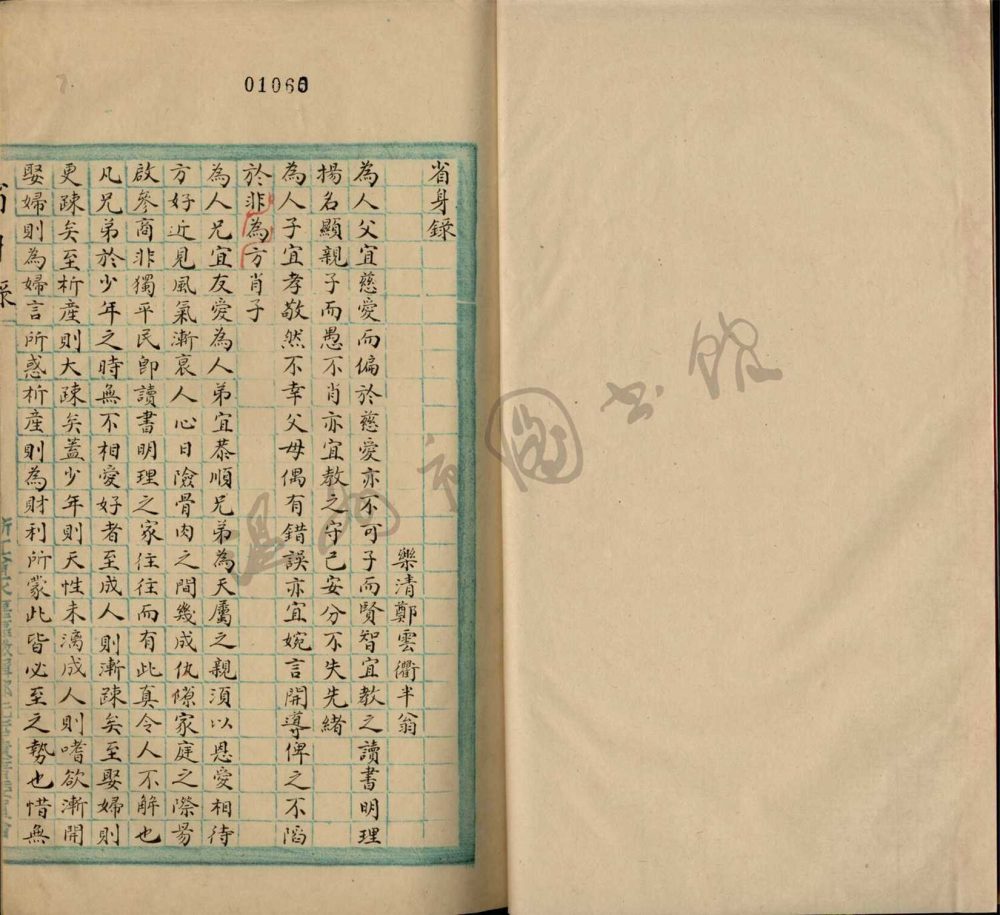 01066
省身録
樂清鄭雲衢半翁
為人父宜慈愛而偏於慈愛亦不可子而賢智宜教之讀書明理
揚名顯親子而愚不肖亦宜教之守己安分不失先緒
為人子宜孝敬然不幸父母偶有錯誤亦宜婉言開導俾之不䧟
於非為方肖子
為人兄宜友愛為人弟宜恭順兄弟為天屬之親須以恩愛相待
方好近見風氣漸衰人心日險骨肉之間幾成仇隙家庭之際易
啟參商非獨平民即讀書明理之家往往而有此真令人不解也
凡兄弟於少年之時無不相愛好者至成人則漸踈矣至娶婦則
更踈矣至析産則大踈矣蓋少年則天性未漓成人則嗜欲漸開
娶婦則為婦言所惑析産則為財利所蒙此皆必至之勢也惜無
溫州市圖書館